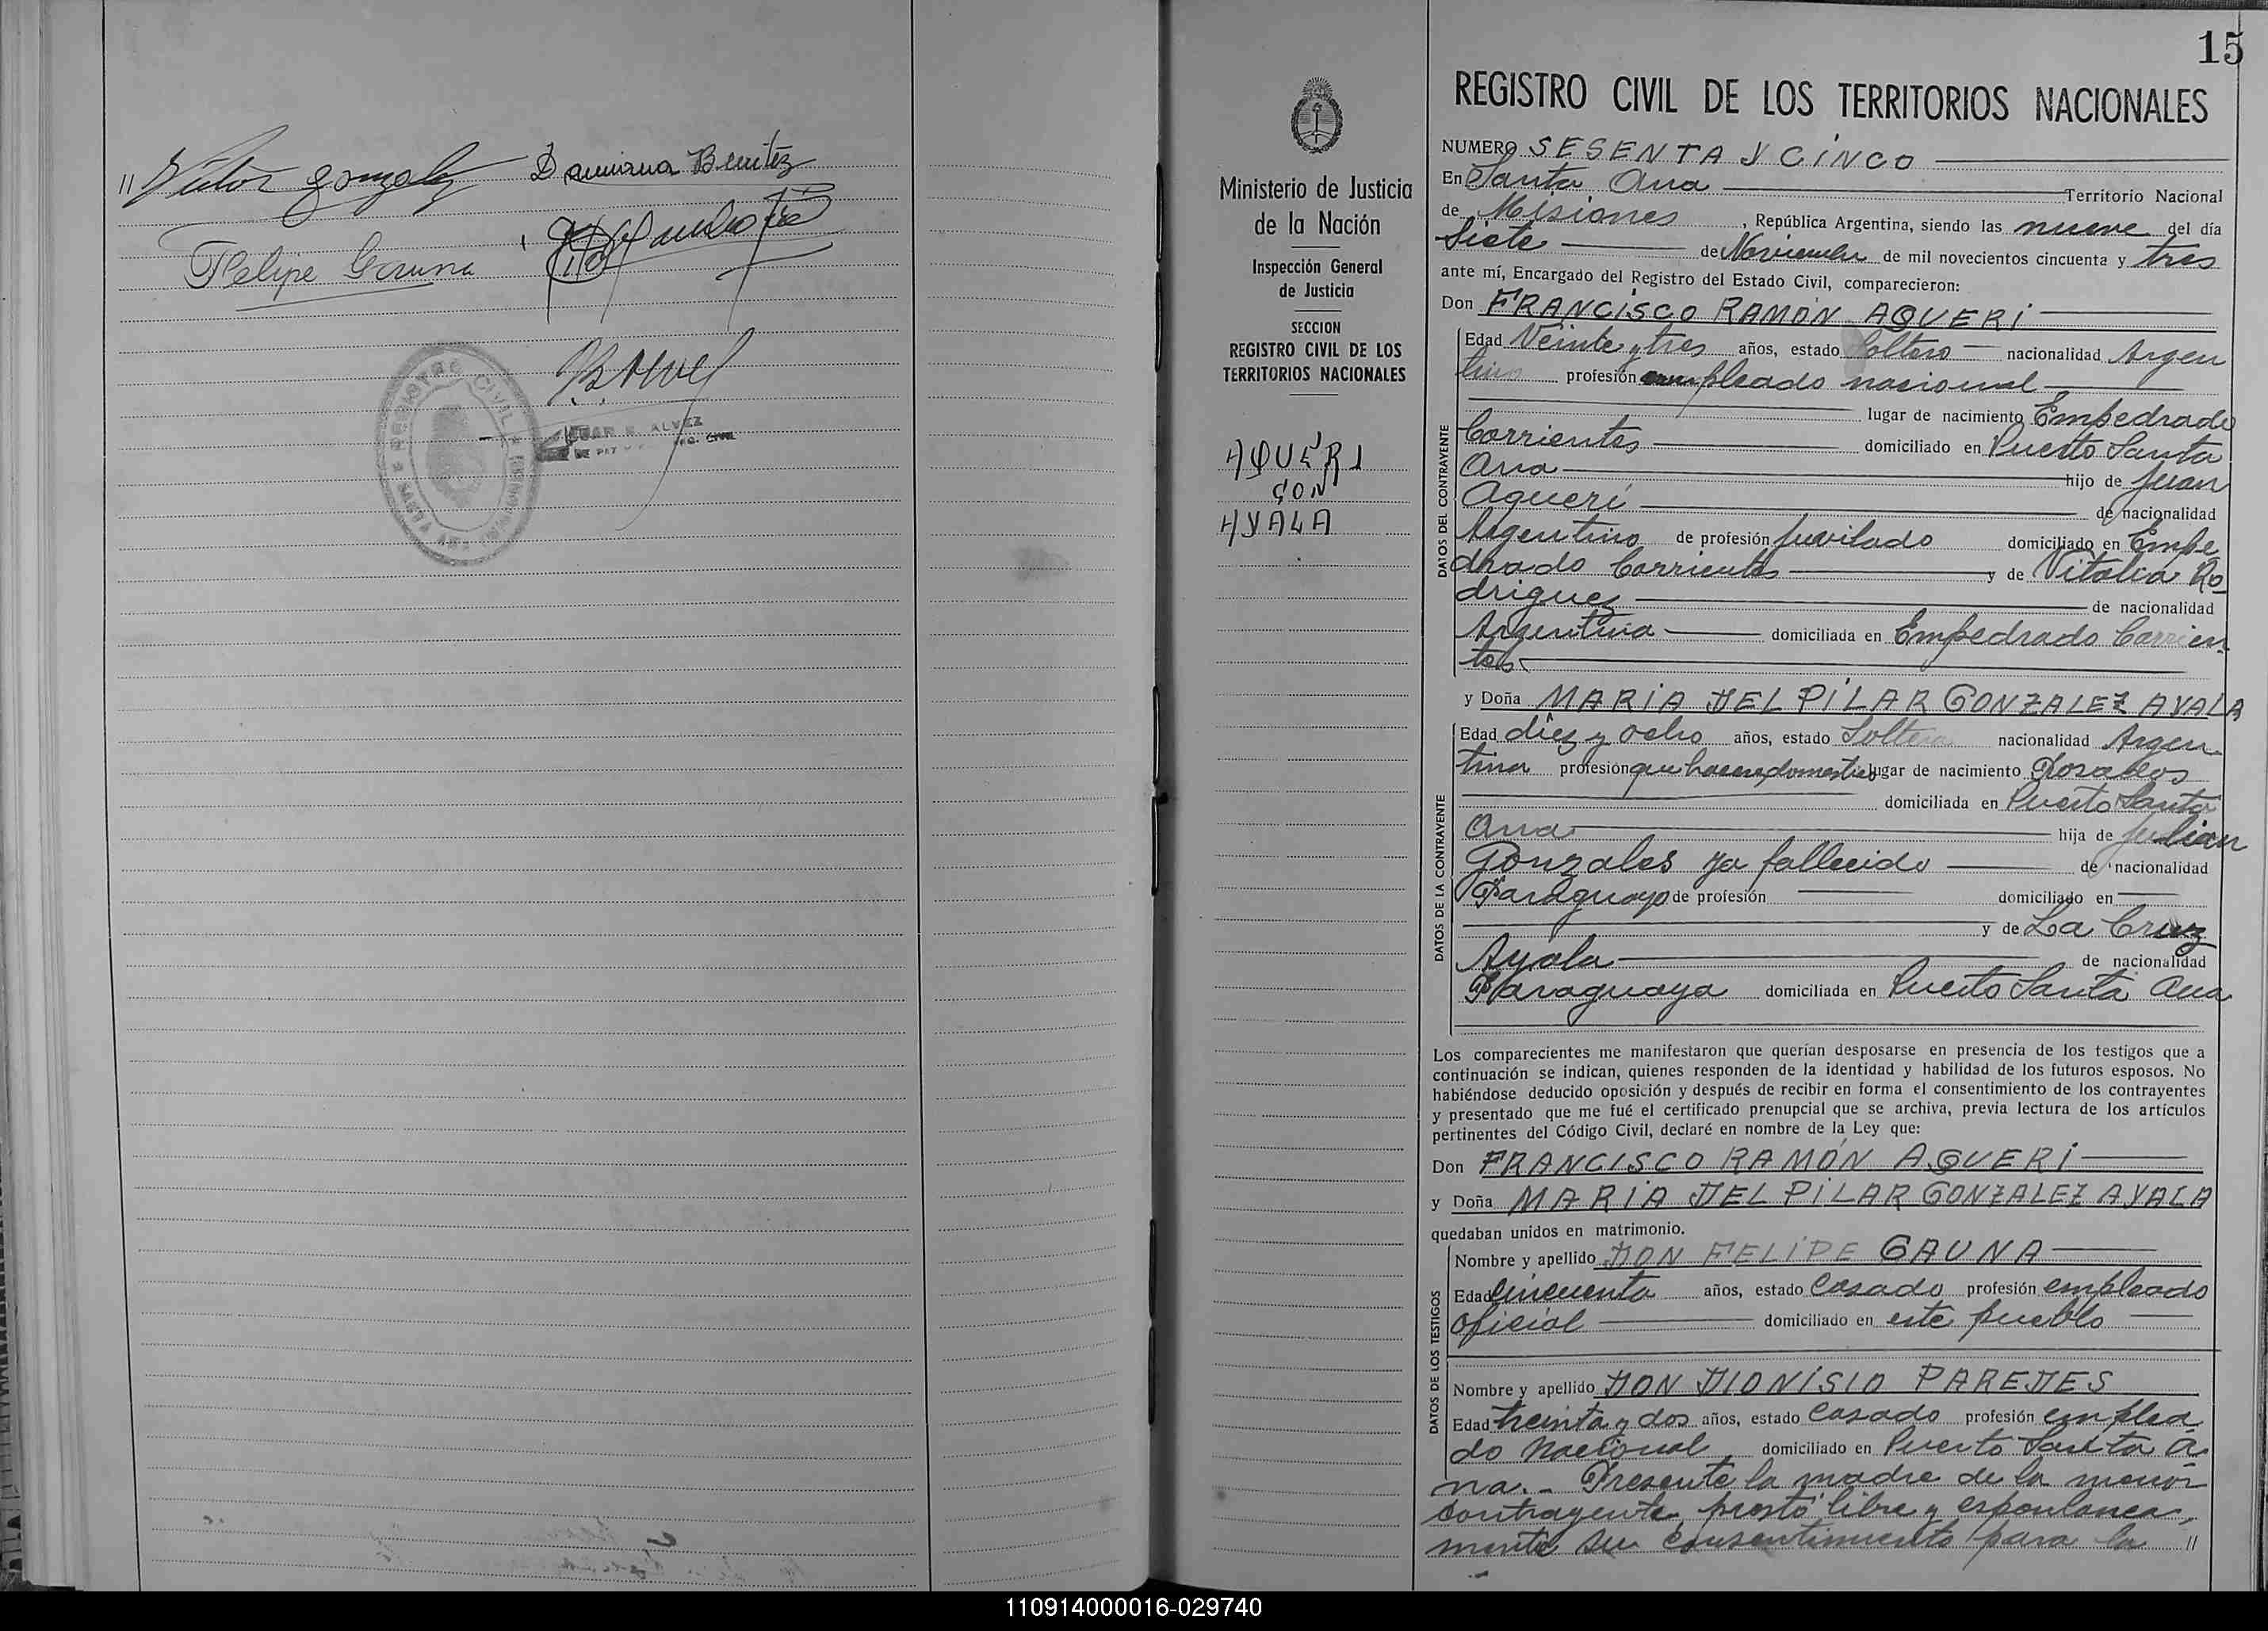 " Victor Gonzalez Damiana Benitez
Felipe Gauna
REGISTRO CIVIL
SANTA ANA
JUAN E. ALVEZ
REG. CIVIL
15
Ministerio de Justicia
de la Nación
Inspección General
de Justicia
SECCION
REGISTRO CIVIL DE LOS
TERRITORIOS NACIONALES
AQUERI
CON
AYALA
REGISTRO CIVIL DE LOS TERRITORIOS NACIONALES
NUMERO SESENTA Y CINCO
En Santa Ana Territorio Nacional
de Misiones, República Argentina, siendo las nueve del día
Siete de Noviembre de mil novecientos cincuenta y tres
ante mí, Encargado del Registro del Estado Civil, comparecieron:
Don FRANCISCO RAMÓN AQUERI
DATOS DEL CONTRAYENTE
Edad Veinte y tres años, estado Soltero nacionalidad Argen
tino profesión empleado nacional
lugar de nacimiento Empedrado
Corrientes domiciliado en Puerto Santa
Ana hijo de Juan
Aqueri de nacionalidad
Argentino de profesión Juvilado domiciliado en Empe
drado Corrientes y de Vitalia Ro
driguez de nacionalidad
Argentina domiciliada en Empedrado Corrien
tes
y Doña MARIA DEL PILAR GONZALEZ AYALA
DATOS DE LA CONTRAYENTE
Edad diez y ocho años, estado Soltera nacionalidad Argen
tina profesión que haceres domesticos lugar de nacimiento Rosales
domiciliada en Puerto Santa
Ana hija de Julian
Gonzales ya fallecido de nacionalidad
Paraguayo de profesión domiciliado en
y de La Cruz
Ayala de nacionalidad
Paraguaya domiciliada en Puerto Santa Ana
Los comparecientes me manifestaron que querían desposarse en presencia de los testigos que a
continuación se indican, quienes responden de la identidad y habilidad de los futuros esposos. No
habiéndose deducido oposición y después de recibir en forma el consentimiento de los contrayentes
y presentado que me fué el certificado prenupcial que se archiva, previa lectura de los artículos
pertinentes del Código Civil, declaré en nombre de la Ley que:
Don FRANCISCO RAMÓN AQUERI
y Doña MARIA DEL PILAR GONZALEZ AYALA
quedaban unidos en matrimonio.
DATOS DE LOS TESTIGOS
Nombre y apellido DON FELIPE GAUNA
Edad Cincuenta años, estado Casado profesión empleado
oficial domiciliado en este pueblo
Nombre y apellido DON DIONISIO PAREDES
Edad treinta y dos años, estado Casado profesión emplea
do Nacional domiciliado en Puerto Santa A
na.- Presente la madre de la menor
contrayente, prestó libre y espontanea
mente su consentimiento para la "
110914000016-029740